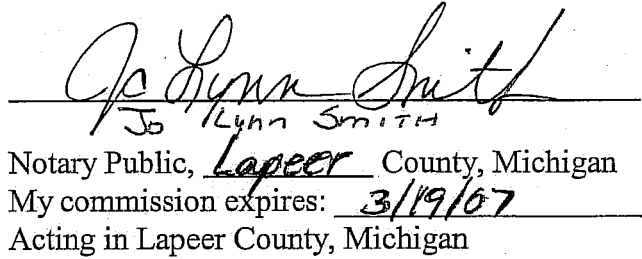 Jo Lynn Smith
Jo Lynn Smith
Notary Public, Lapeer County, Michigan
My commission expires: 3/19/07
Acting in Lapeer County, Michigan